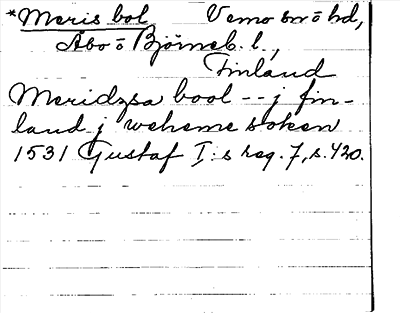 *Meris bol Vemo snö hd,
Åbo o Björneb. l.,
Finland
Meridzsa bool -- j fin-
land j weheme soken
1531 Gustaf I:s reg. 7, s. 420.